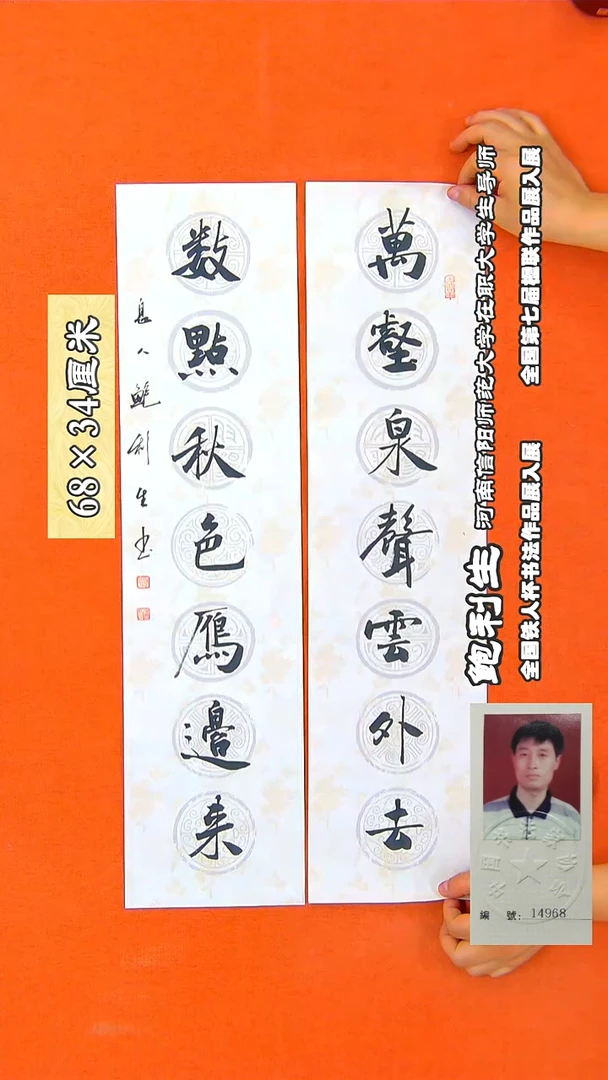 萬壑泉聲雲外去
数點秋色雁邊来
息人鮑利生书
68×34厘米
鲍利生
河南信阳师范大学在职大学生导师
全国铁人杯书法作品展入展
全国第七届楹联作品展入展
編 號：14968